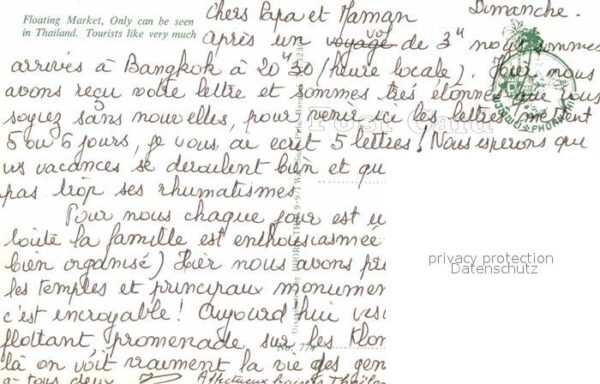 Floating Market, Only can be seen
in Thailand. Tourists like very much
Dimanche.
Chers Papa et Maman
Après un voyage vol de 3H nous sommes
arrivés à Bangkok à 20H30 (heure locale). Hier nous
avons reçu votre lettre et sommes très étonnés que vous
soyez sans nouvelles, pour venir ici les lettres mettent
5 ou 6 jours, je vous ai écrit 5 lettres! Nous espérons que
vs vacances se déroulent bien et qu
pas trop ses rhumatismes
Pour nous chaque jour est u
toute la famille est enthousiasmée
bien organisé) Hier nous avons pri
les temples et principaux monumen
c'est incroyable! Aujourd'hui visi
flottant promenade sur les Klon
là on voit vraiment la vie des gen
à tous deux
Affectueux baisers Thaïlan
Post Card
No. 774
privacy protection
Datenschutz